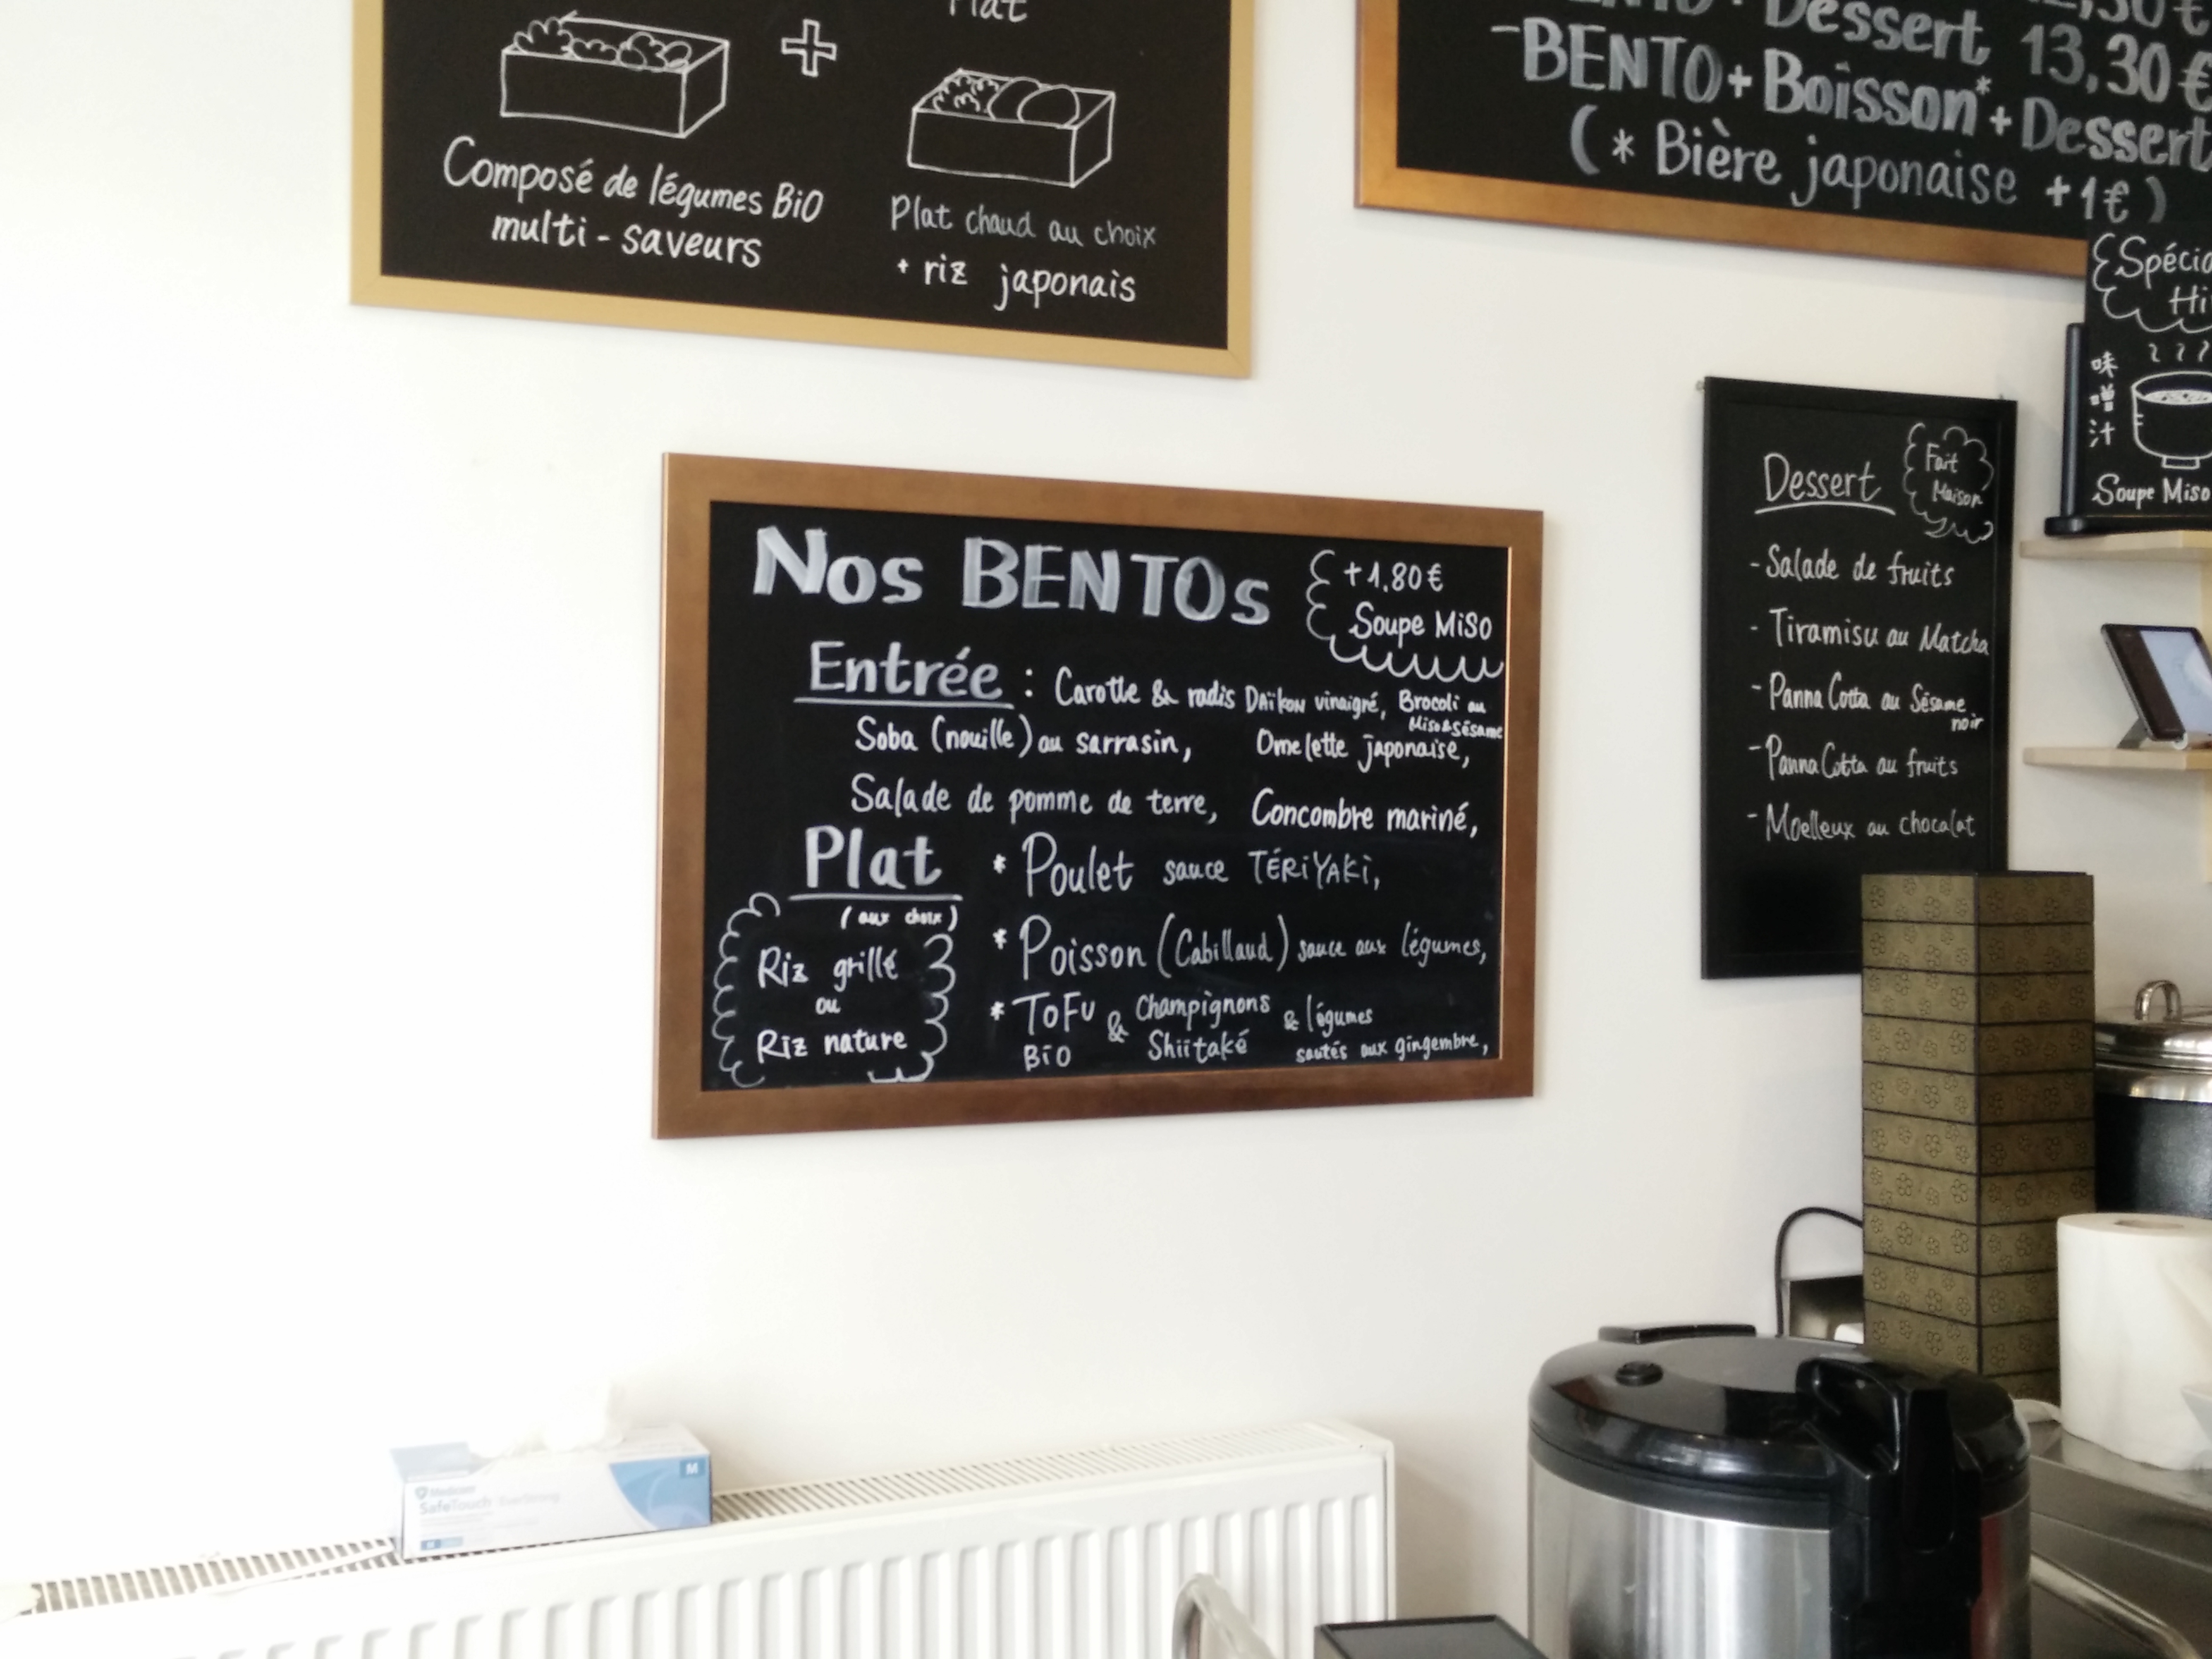 Plat
Composé de légumes BiO
multi-saveurs
Plat chaud au choix
+ riz japonais
Dessert 13,30 €
-BENTO + Boisson* + Dessert
(* Bière japonaise +1€)
Spécia
Hi
味
噌
汁
Soupe Miso
Nos BENTOs
+1,80€
Soupe MiSO
Entrée : Carotte & radis Daïkon vinaigré, Brocoli au
Miso&Sésame
Soba (nouille) au sarrasin, Omelette japonaise,
Salade de pomme de terre, Concombre mariné,
Plat
(aux choix)
Riz grillé
ou
Riz nature
* Poulet sauce TÉRiYAKi,
* Poisson (Cabillaud) sauce aux légumes,
* ToFu & Champignons & légumes
BiO Shiitaké sautés aux gingembre,
Dessert
Fait
Maison
- Salade de fruits
- Tiramisu au Matcha
- Panna Cotta au Sésame
noir
- Panna Cotta au fruits
- Moelleux au chocalat
M
Medicom
SafeTouch